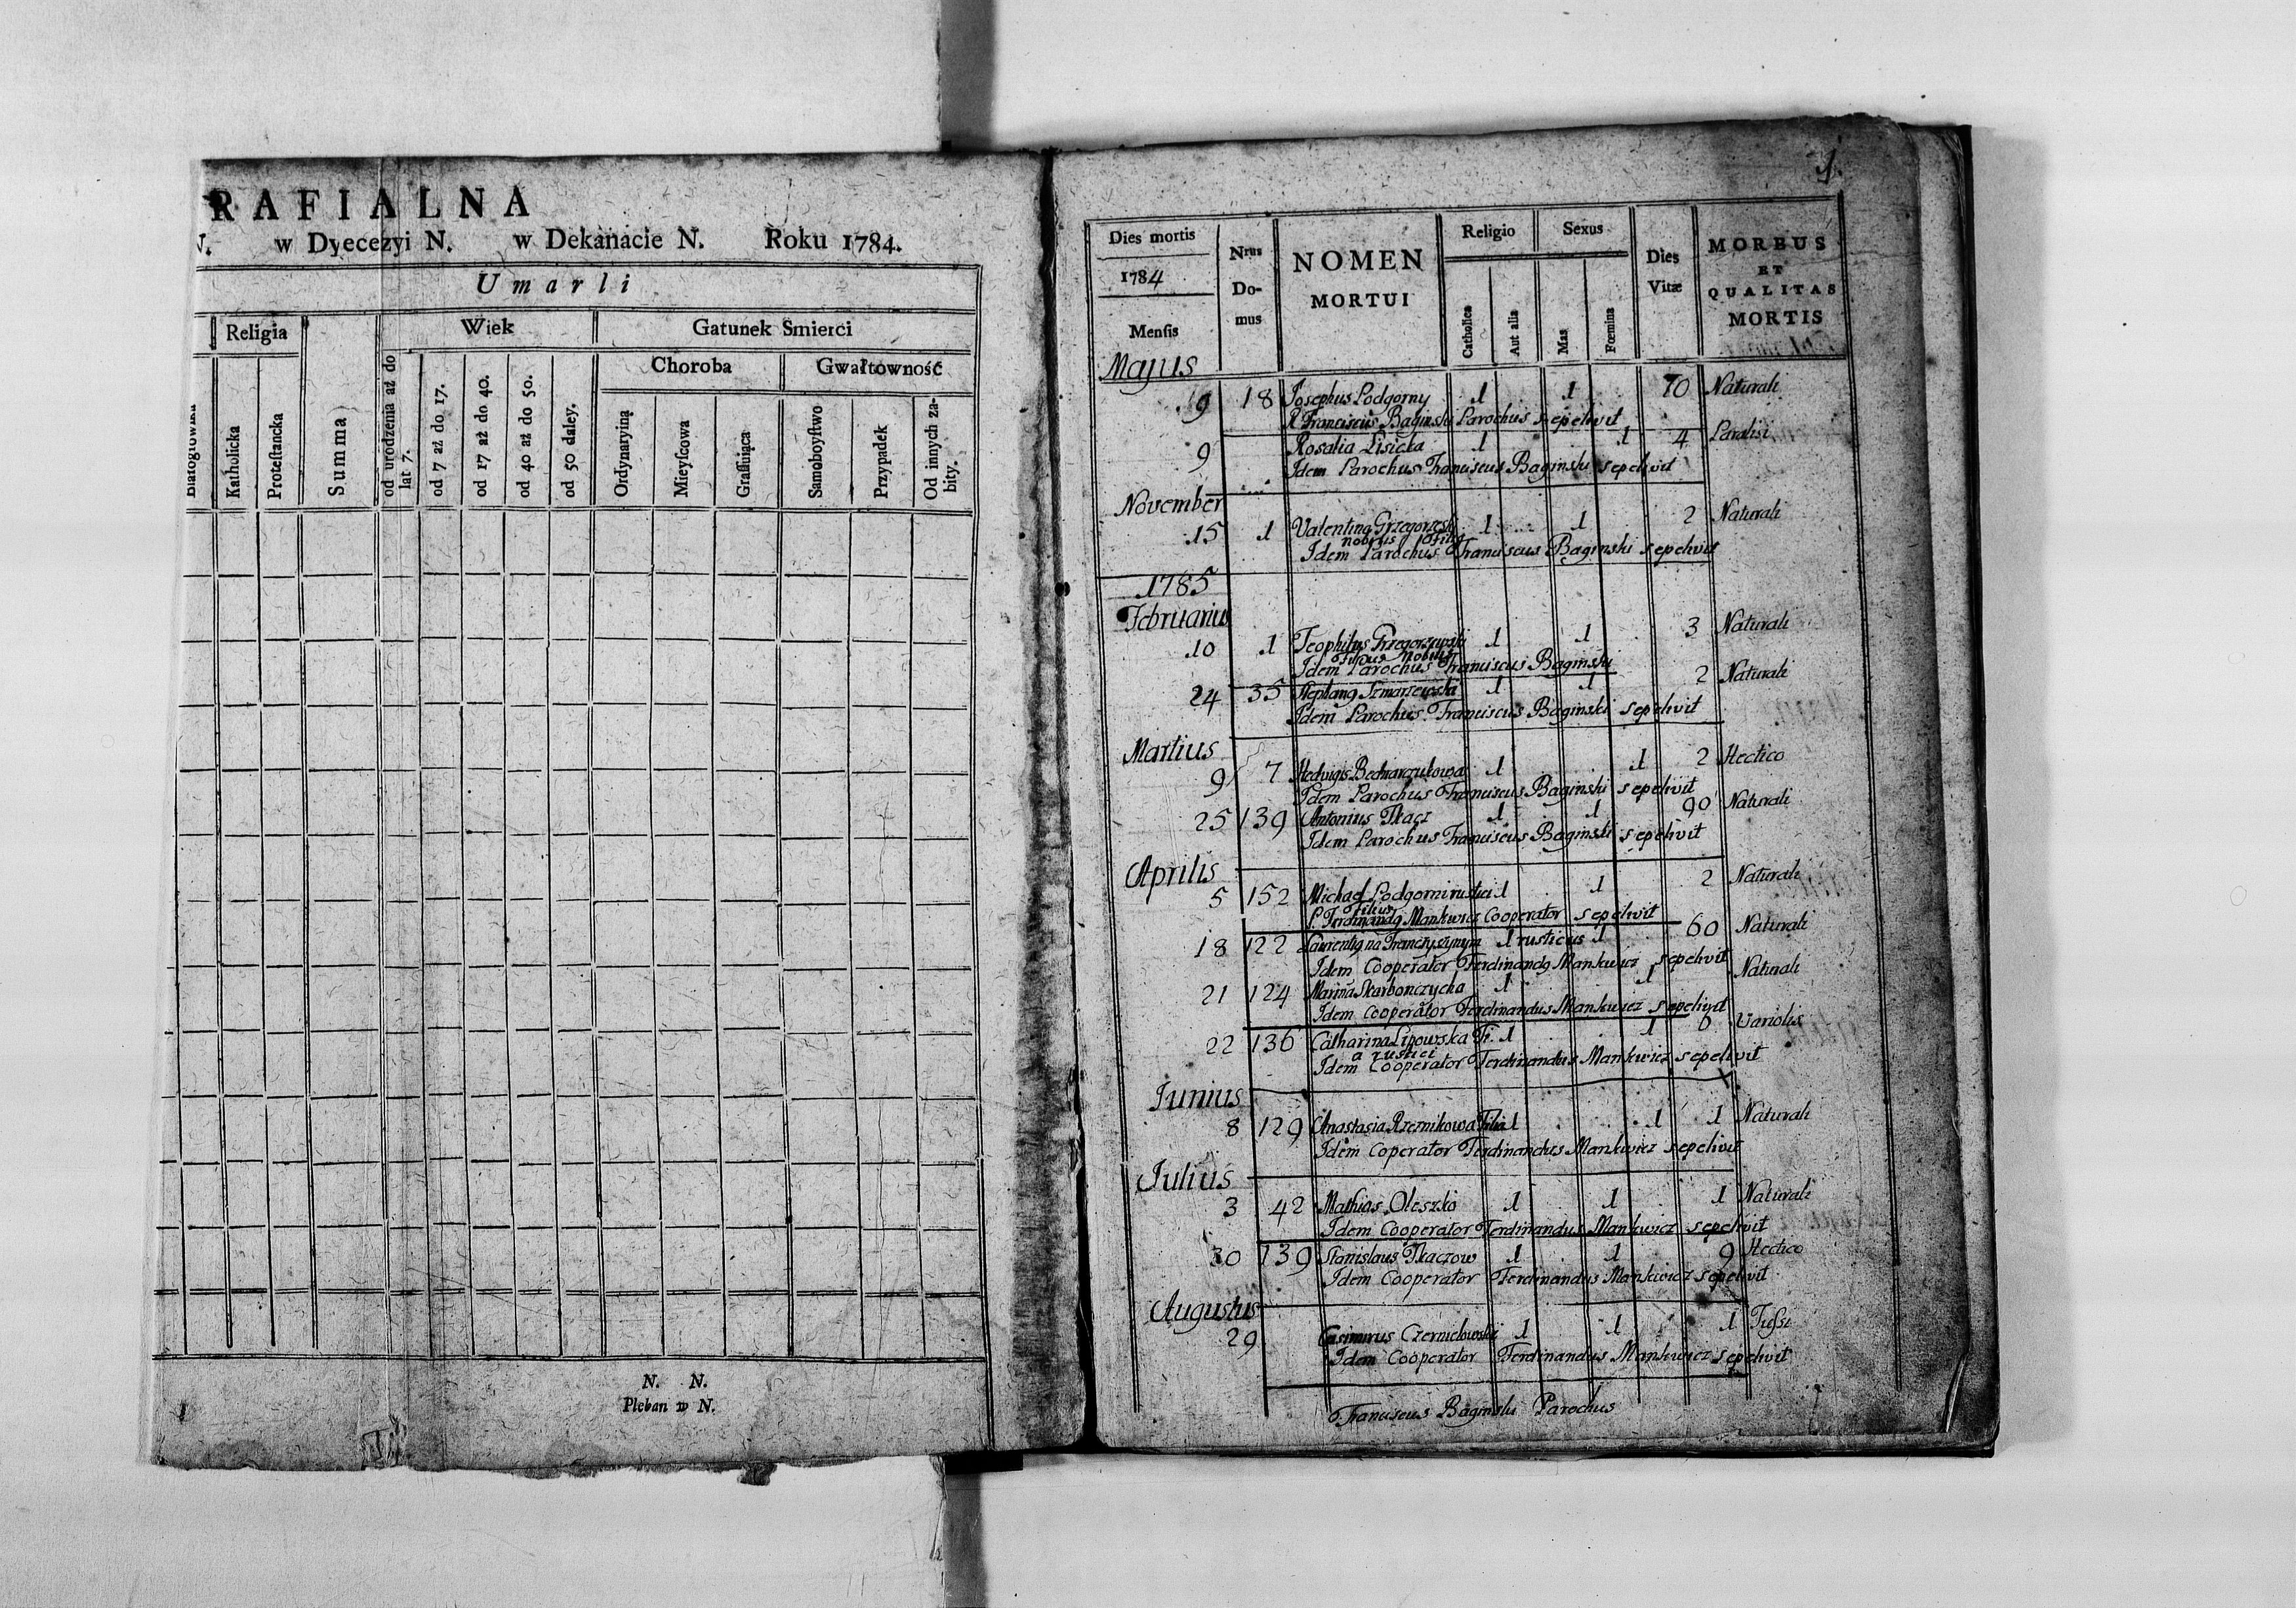 RAFIALNA
N. w Dyecezyi N. w Dekanacie N. Roku 1784.
Umarli
Religia
Wiek
Gatunek Smierci
Choroba
Gwałtowność
Katholicka
Proteſtancka
Summa
od urodzenia aż do
lat 7.
od 7 aż do 17.
od 17 aż do 40.
od 40 aż do 50.
od 50 daley.
Ordynaryiną
Mieyſcowa
Graſſuiąca
Samoboyſtwo
Przypadek
Od innych za-
bity.
N. N.
Pleban w N.
1.
Dies mortis
1784
Menſis
Nrus
Do-
mus
NOMEN
MORTUI
Religio
Catholica
Aut alia
Sexus
Mas
Fœmina
Dies
Vitæ
MORBUS
ET
QUALITAS
MORTIS
Majus
9 18 Josephus Podgorny 1 1 70 Naturali
R Franciscus Baginski Parochus sepelivit
9 Rosalia Lisicka 1 1 4 Paralisi
Idem Parochus Franciscus Baginski sepelivit
November
15 1 1 1 2 Naturali
Idem Parochus Franciscus Baginski sepelivit
1785
Februarius
10 1 Teophilus Grzegorzewski 1 1 3 Naturali
Filius Nobilis
Idem Parochus Franciscus Baginski
24 35 1 1 2 Naturali
Idem Parochus Franciscus Baginski sepelivit
Martius
9 7 Hedvigis Bednarczukowa 1 1 2 Hectico
Idem Parochus Franciscus Baginski sepelivit
25 139 Antonius Tkacz 1 1 90 Naturali
Idem Parochus Franciscus Baginski sepelivit
Aprilis
5 152 Michael Podgorni rustici 1 1 2 Naturali
Filius
P. Ferdinandg Mankwicz Cooperator sepelivit
18 122 1 rusticus 1 60 Naturali
Idem Cooperator Ferdinandg Mankwicz sepelivit
21 124 Marina Skarbonczycha 1 1 Naturali
Idem Cooperator Ferdinandus Mankwicz sepelivit
22 136 Catharina Lipowska Fi 1 1 Variolis
a rustici
Idem Cooperator Ferdinandus Mankwicz sepelivit
Iunius
8 129 Anastasia Rzeznikowa Filia 1 1 1 Naturali
Idem Coperator Ferdinandus Mankwicz sepelivit
Iulius
3 42 Mathias Oleszko 1 1 1 Naturali
Idem Cooperator Ferdinandus Mankwicz sepelivit
30 139 Stanislaus Tkaczow 1 1 9 Hectico
Idem Cooperator Ferdinandus Mankwicz sepelivit
Augustus
29 Casimirus Czernielowski 1 1 1 Tuſsi
Idem Cooperator Ferdinandus Mankwicz sepelivit
Franciscus Baginski Parochus